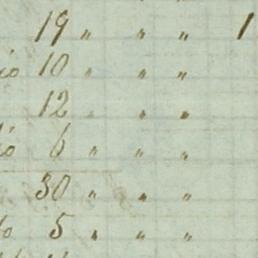 19 " " " 1
io 10 " " "
12 " " "
io 6 " " "
30 " " "
5 " " "